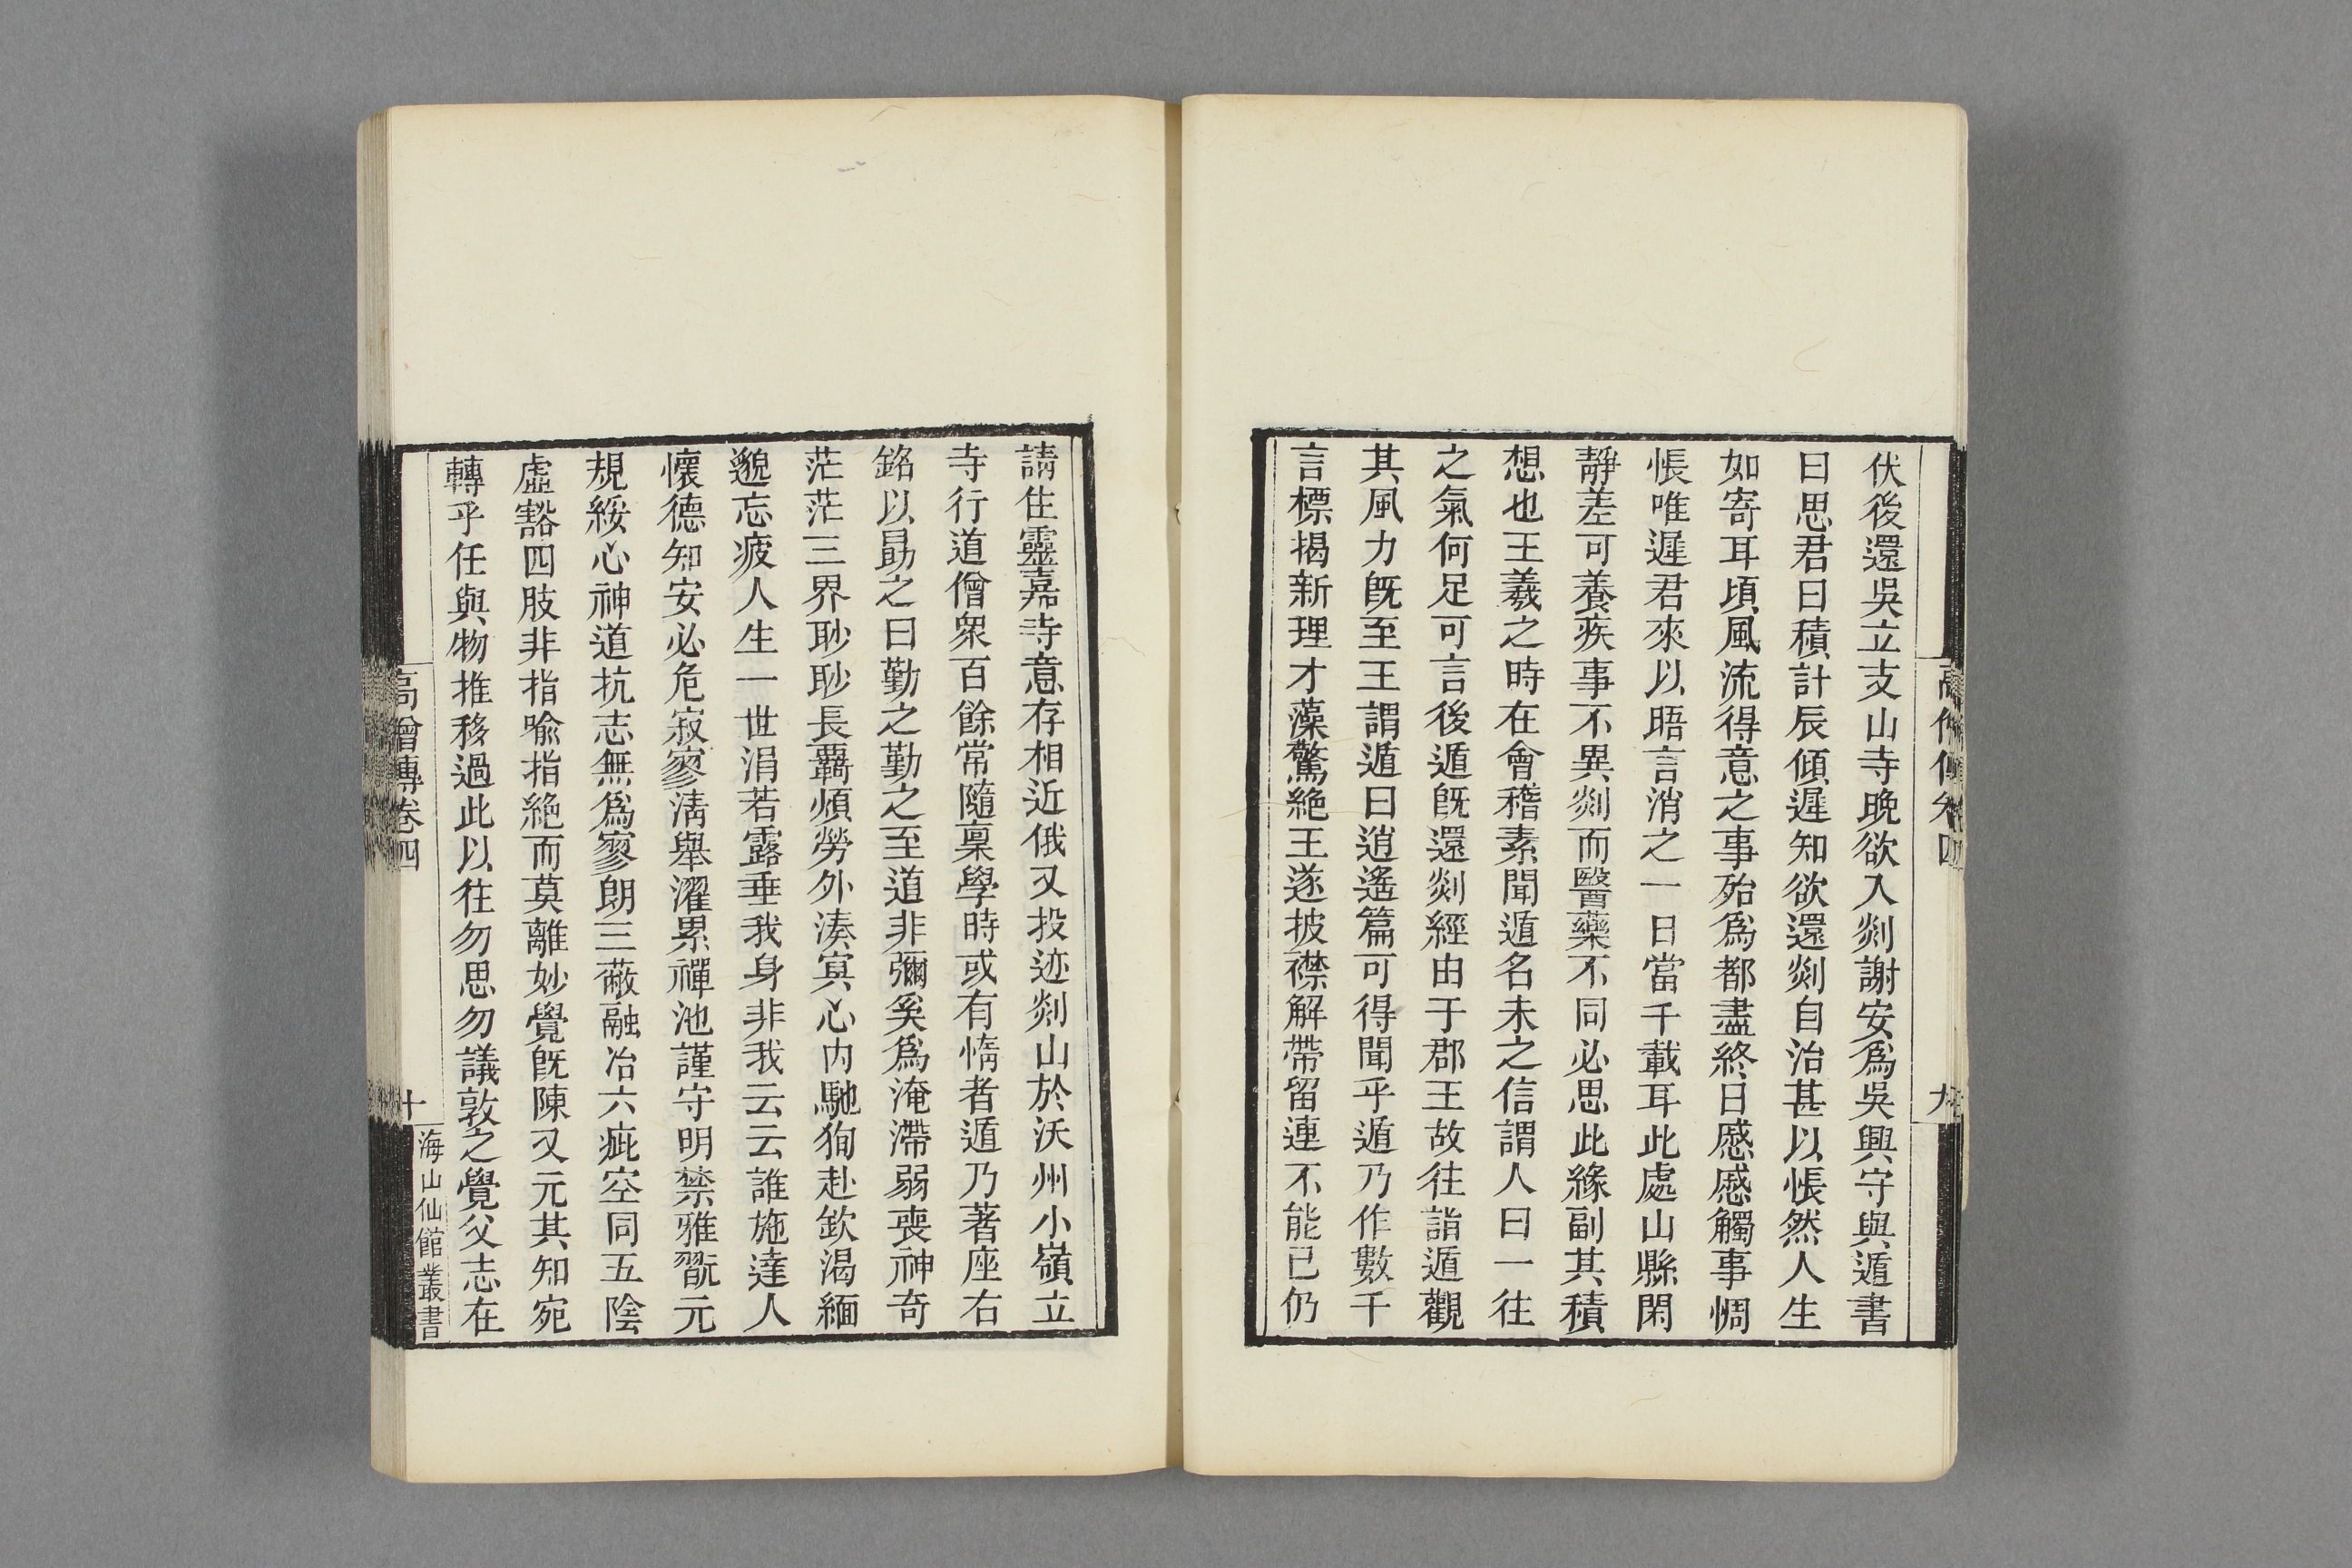 高僧傳卷四
九
伏後還吳立支山寺晚欲入剡謝安爲吳興守與遁書
曰思君日積計辰傾遲知欲還剡自治甚以悵然人生
如寄耳頃風流得意之事殆爲都盡終日慼慼觸事惆
悵唯遲君來以晤言消之一日當千載耳此處山縣閑
靜差可養疾事不異剡而醫藥不同必思此緣副其積
想也王羲之時在會稽素聞遁名未之信謂人曰一往
之氣何足可言後遁既還剡經由于郡王故往詣遁觀
其風力既至王謂遁曰逍遙篇可得聞乎遁乃作數千
言標揭新理才藻驚絕王遂披襟解帶留連不能已仍
請住靈嘉寺意存相近俄又投迹剡山於沃州小嶺立
寺行道僧衆百餘常隨稟學時或有惰者遁乃著座右
銘以勗之曰勤之勤之至道非彌奚爲淹滯弱喪神奇
茫茫三界眇眇長羈煩勞外湊冥心內馳徇赴欽渴緬
邈忘疲人生一世涓若露垂我身非我云云誰施達人
懷德知安必危寂寥淸舉濯累禪池謹守明禁雅翫元
規綏心神道抗志無爲寥朗三蔽融冶六疵空同五陰
虛豁四肢非指喻指絕而莫離妙覺既陳又元其知宛
轉乎任與物推移過此以往勿思勿議敦之覺父志在
高僧傳卷四
十
海山仙館叢書